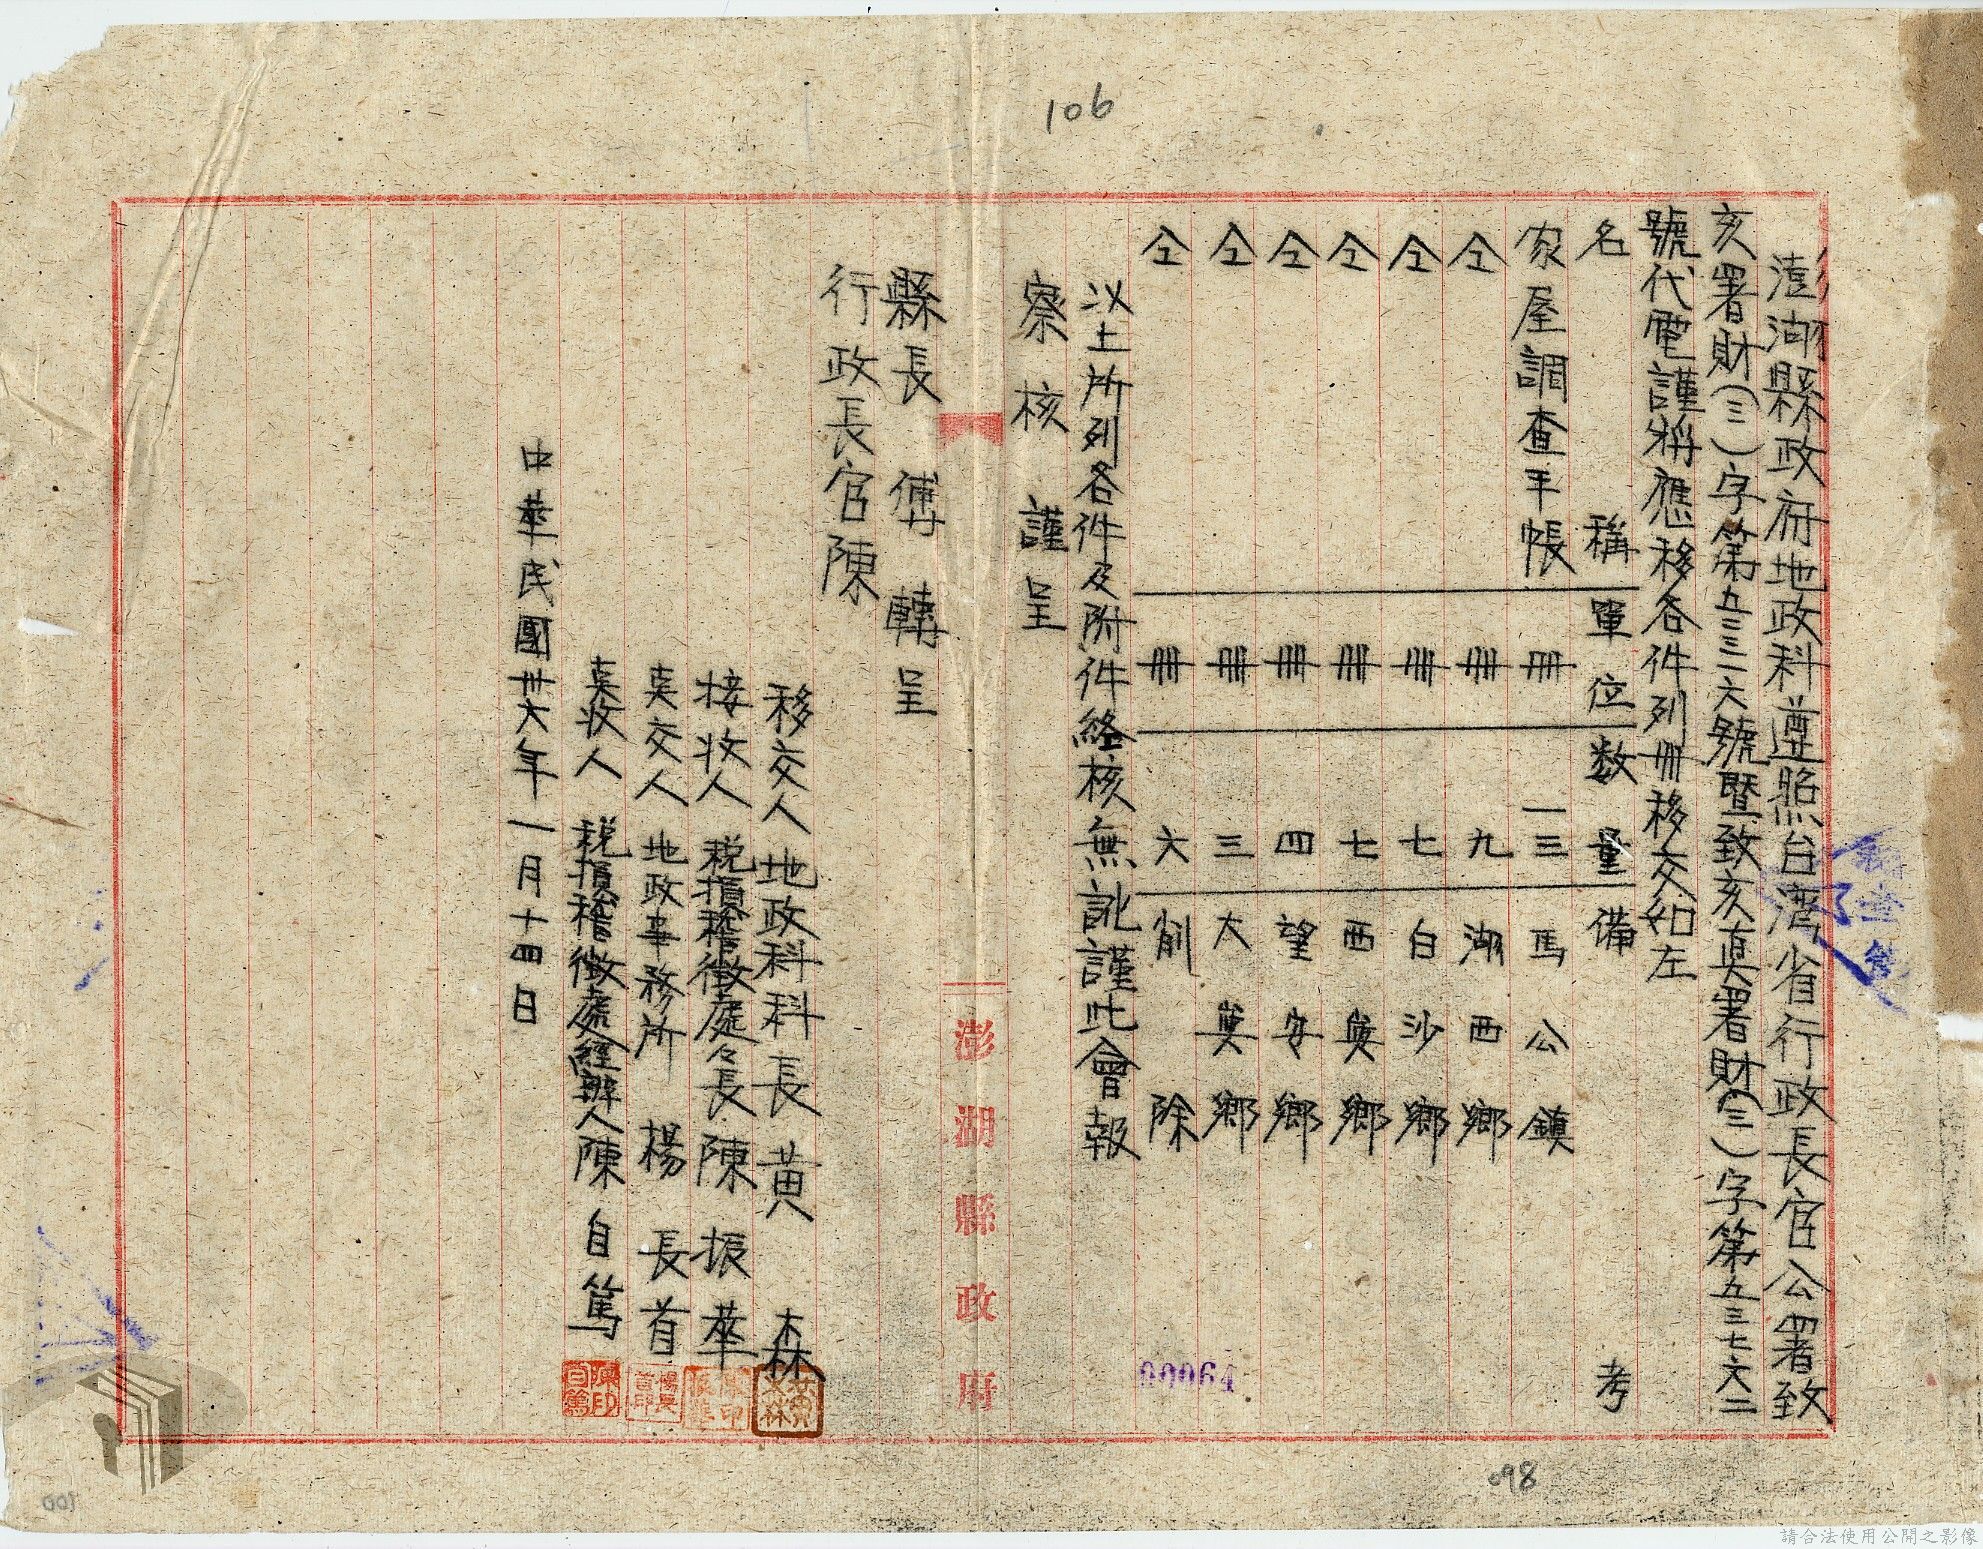 106
澎湖縣政府地政科遵照台灣省行政長官公署致
亥署財(三)字第五三三六號暨致亥真署財(三)字第五三七六二
號代電謹將應移各件列冊移交如左
名 稱 單位 数量 備 考
家屋調查平帳 冊 一三 馬公鎮
仝 冊 九 湖西鄉
仝 冊 七 白沙鄉
仝 冊 七 西嶼鄉
仝 冊 四 望安鄉
仝 冊 三 大嶼鄉
仝 冊 六 削除
以上所列各件及附件經核無訛謹此會報
察核 謹呈
澎湖縣政府
縣長 傅 轉呈
行政長官陳
移交人 地政科科長 黃森
接收人 稅捐稽徵處々長 陳振華
交人 地政事務所 楊長首
收人 稅捐稽徵處經辦人 陳自篤
中華民國卅六年一月十四日
00064
098
100
請合法使用公開之影像